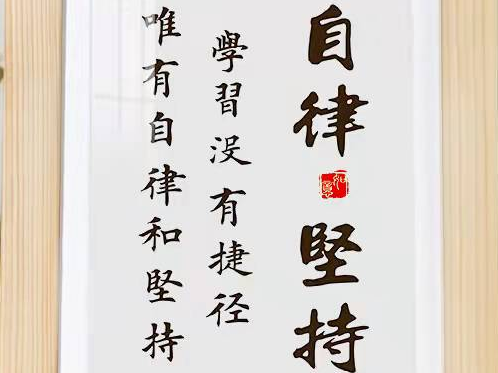 自律
如意
堅持
學習没有捷径
唯有自律和堅持